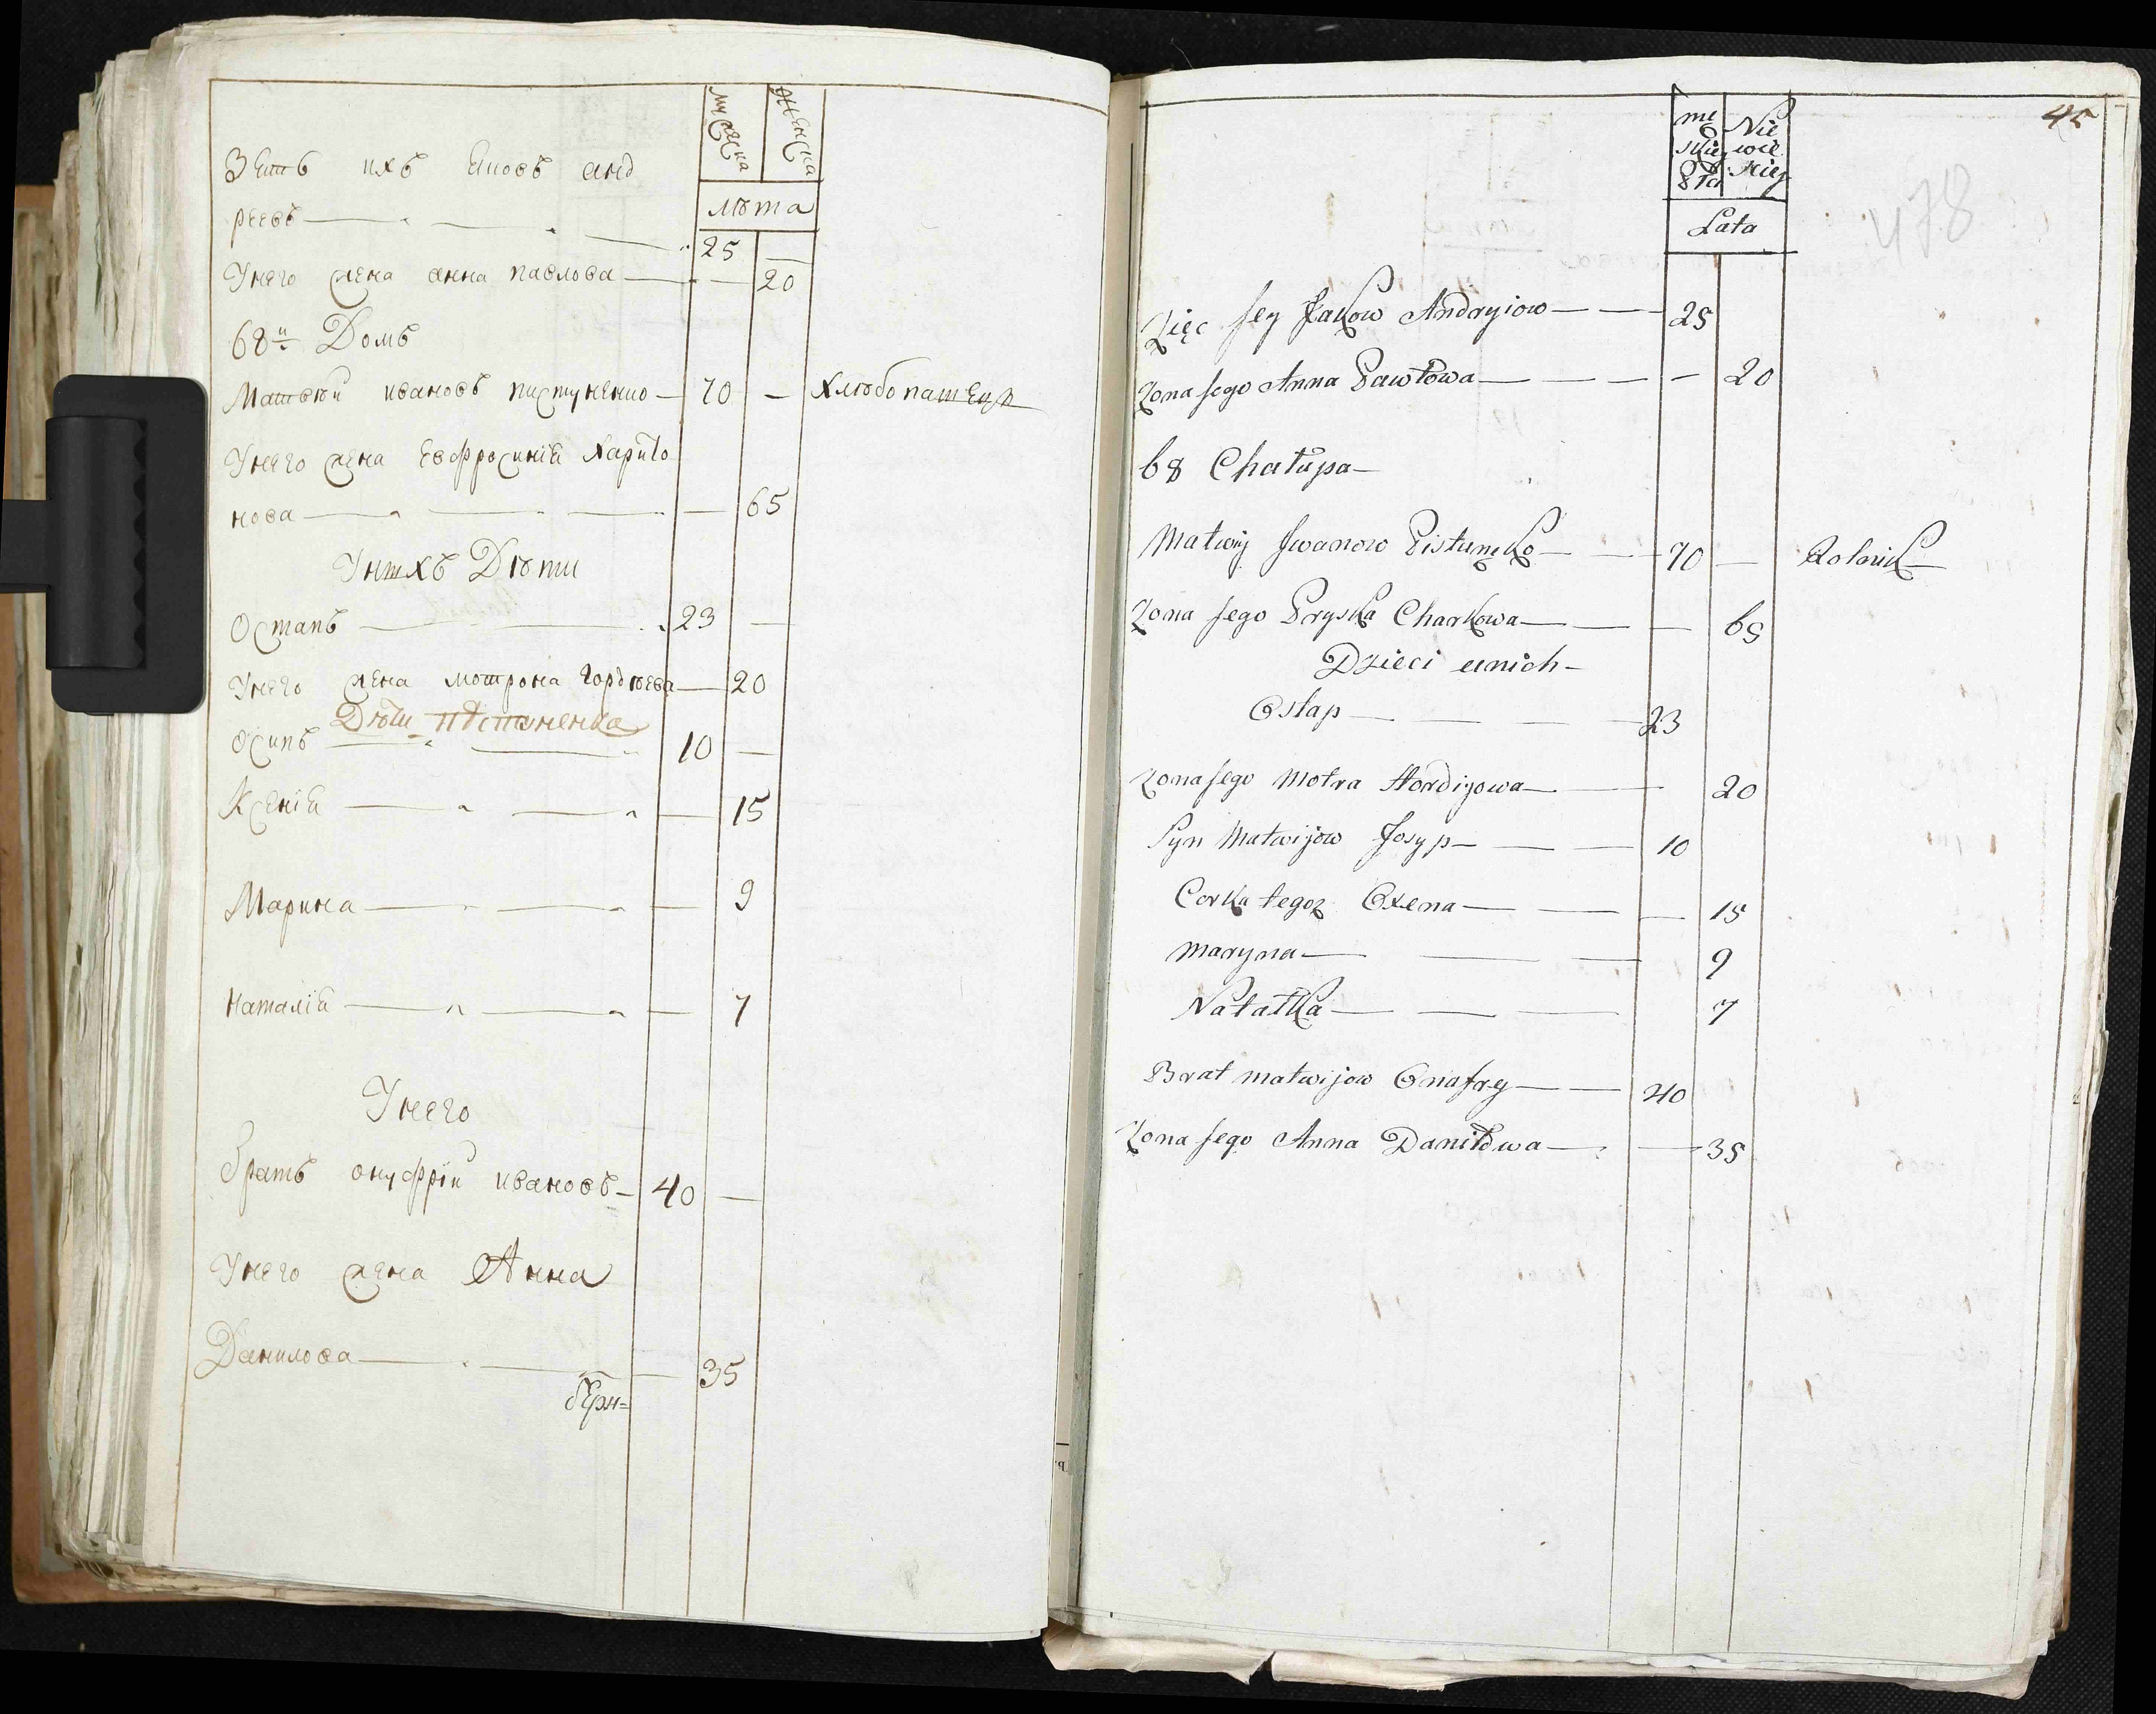 мужеска
женска
лѣта
Зять ихъ яковъ анд
реевъ — 25 —
Унего жена анна павлова — — 20
68й Домъ
Матвѣй ивановъ пистуненко — 70 — хлѣбопашецъ
Унего жена Евфросинія Харито
нова — — 65
Унихъ Дѣти
Остапъ — 23 —
Унего жена мотрона гордѣева — 20
Дѣти пѣстуненка
Осипъ — 10 —
Ксенія — — 15
Марина — — 9
Наталія — — 7
Унего
братъ онуфрій ивановъ — 40 —
Унего жена Анна
Данилова — — 35
45
478
Lata
Zięc Jey Jakow Andryiow — — 25
Zona Jego Anna Pawłowa — — — — 20
68 Chałupa —
Matwiy Jwanow Pistunęko — — 70 — Rolnik —
Zona Jego Pryska Charkowa — — — 65
Dzieci unich —
Ostap — — — — 23
Zona Jego Motra Hordijowa — — 20
Syn Matwijow Josyp — — — 10
Corka tegoz Oxena — — — 15
Maryna — — — 9
Natałka — — — 7
Brat matwijow Onafry — — 40
Zona Jego Anna Daniłowa — — 35